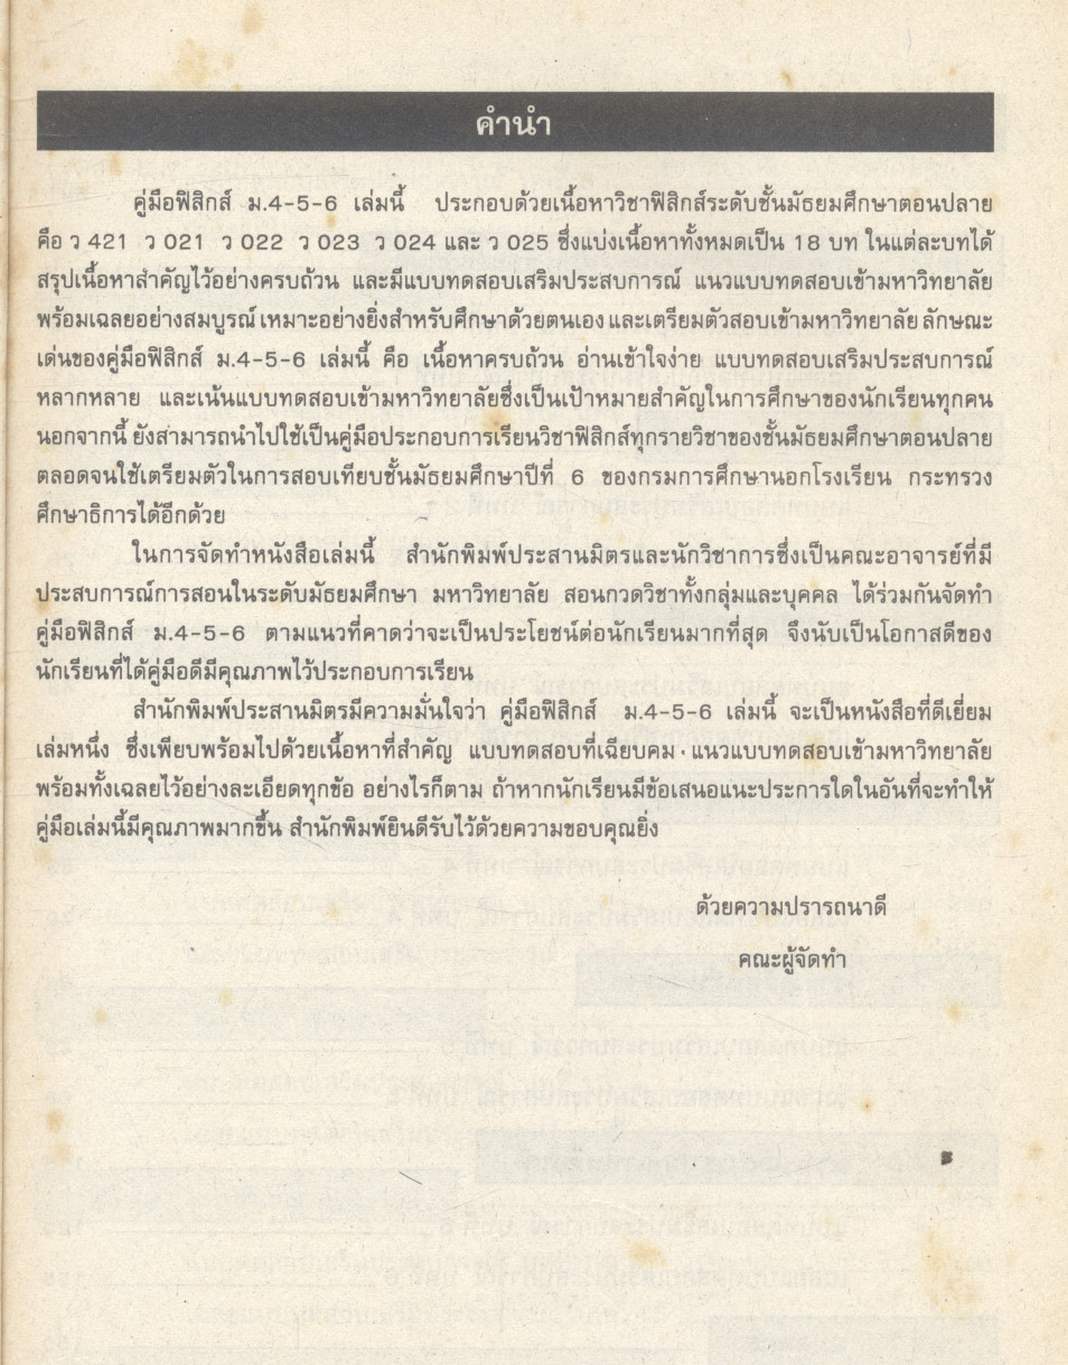 คำนำ
คู่มือฟิสิกส์ ม.4-5-6 เล่มนี้ ประกอบด้วยเนื้อหาวิชาฟิสิกส์ระดับชั้นมัธยมศึกษาตอนปลาย
คือ ว 421 ว 021 ว 022 ว 023 ว 024 และ ว 025 ซึ่งแบ่งเนื้อหาทั้งหมดเป็น 18 บท ในแต่ละบทได้
สรุปเนื้อหาสำคัญไว้อย่างครบถ้วน และมีแบบทดสอบเสริมประสบการณ์ แนวแบบทดสอบเข้ามหาวิทยาลัย
พร้อมเฉลยอย่างสมบูรณ์ เหมาะอย่างยิ่งสำหรับศึกษาด้วยตนเอง และเตรียมตัวสอบเข้ามหาวิทยาลัย ลักษณะ
เด่นของคู่มือฟิสิกส์ ม.4-5-6 เล่มนี้ คือ เนื้อหาครบถ้วน อ่านเข้าใจง่าย แบบทดสอบเสริมประสบการณ์
หลากหลาย และเน้นแบบทดสอบเข้ามหาวิทยาลัยซึ่งเป็นเป้าหมายสำคัญในการศึกษาของนักเรียนทุกคน
นอกจากนี้ ยังสามารถนำไปใช้เป็นคู่มือประกอบการเรียนวิชาฟิสิกส์ทุกรายวิชาของชั้นมัธยมศึกษาตอนปลาย
ตลอดจนใช้เตรียมตัวในการสอบเทียบชั้นมัธยมศึกษาปีที่ 6 ของกรมการศึกษานอกโรงเรียน กระทรวง
ศึกษาธิการได้อีกด้วย
ในการจัดทำหนังสือเล่มนี้ สำนักพิมพ์ประสานมิตรและนักวิชาการซึ่งเป็นคณะอาจารย์ที่มี
ประสบการณ์การสอนในระดับมัธยมศึกษา มหาวิทยาลัย สอนกวดวิชาทั้งกลุ่มและบุคคล ได้ร่วมกันจัดทำ
คู่มือฟิสิกส์ ม.4-5-6 ตามแนวที่คาดว่าจะเป็นประโยชน์ต่อนักเรียนมากที่สุด จึงนับเป็นโอกาสดีของ
นักเรียนที่ได้คู่มือดีมีคุณภาพไว้ประกอบการเรียน
สำนักพิมพ์ประสานมิตรมีความมั่นใจว่า คู่มือฟิสิกส์ ม.4-5-6 เล่มนี้ จะเป็นหนังสือที่ดีเยี่ยม
เล่มหนึ่ง ซึ่งเพียบพร้อมไปด้วยเนื้อหาที่สำคัญ แบบทดสอบที่เฉียบคม แนวแบบทดสอบเข้ามหาวิทยาลัย
พร้อมทั้งเฉลยไว้อย่างละเอียดทุกข้อ อย่างไรก็ตาม ถ้าหากนักเรียนมีข้อเสนอแนะประการใดในอันที่จะทำให้
คู่มือเล่มนี้มีคุณภาพมากขึ้น สำนักพิมพ์ยินดีรับไว้ด้วยความขอบคุณยิ่ง
ด้วยความปรารถนาดี
คณะผู้จัดทำ